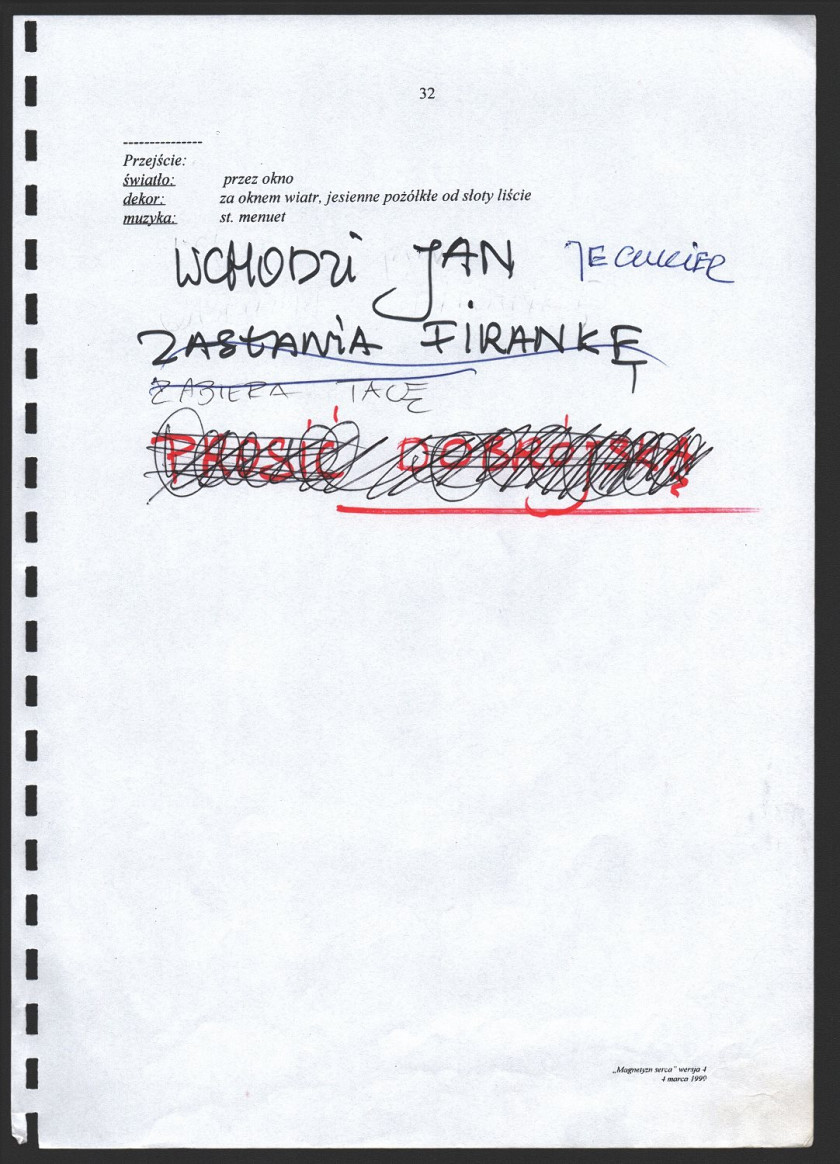 32
---------------
Przejście:
światło: przez okno
dekor: za oknem wiatr, jesienne pożółkłe od słoty liście
muzyka: st. menuet
WCHODZI JAN JE CUKIER
ZASŁANIA FIRANKĘ
ZABIERA TACĘ
PROSIĆ DOBRÓJSKĄ
„Magnetyzm serca" wersja 4
4 marca 1999